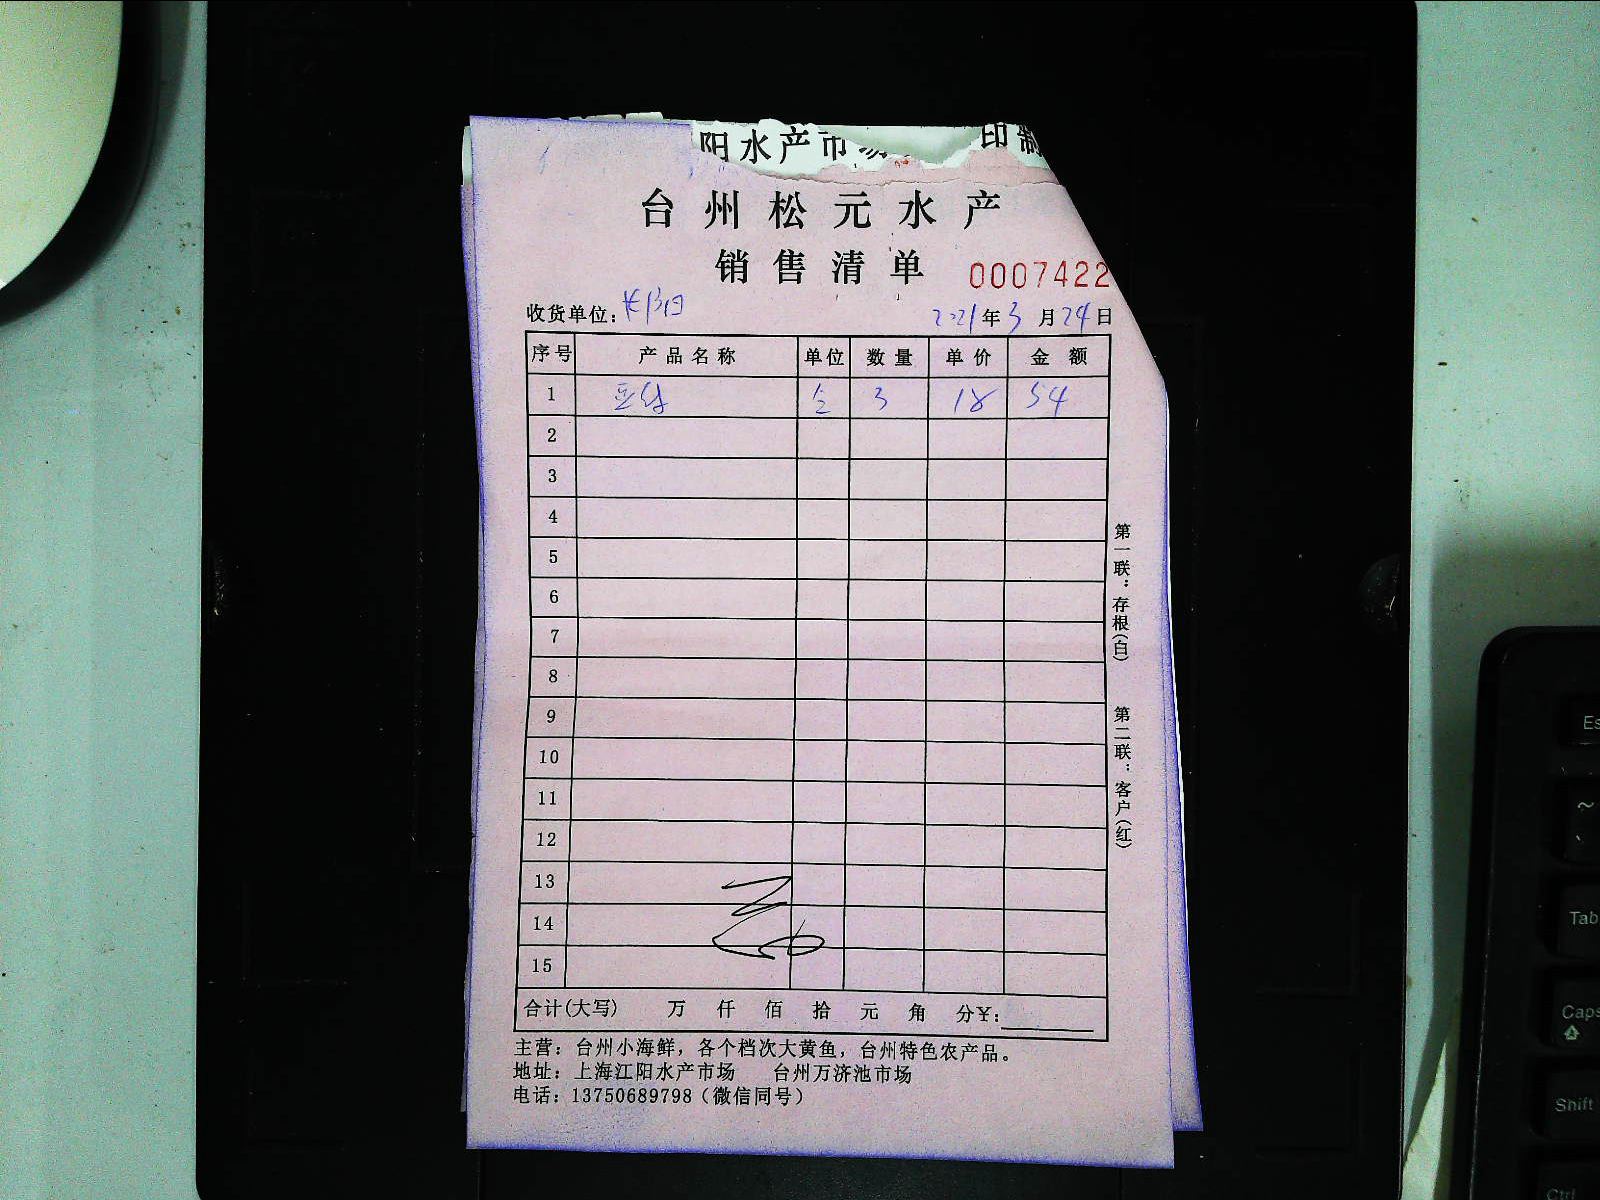 阳水产市场 印制
台州松元水产
销售清单 0007422
收货单位: 2021年3月24日
序号 产品名称 单位 数量 单价 金额
1 3 18 54
2
3
4
5
6
7
8
9
10
11
12
13
14
15
合计(大写) 万 仟 佰 拾 元 角 分¥:
主营: 台州小海鲜, 各个档次大黄鱼, 台州特色农产品。
地址: 上海江阳水产市场 台州万济池市场
电话: 13750689798 (微信同号)
第一联: 存根(白) 第二联: 客户(红)
Es
~
Tab
Caps
Shift
Ctrl